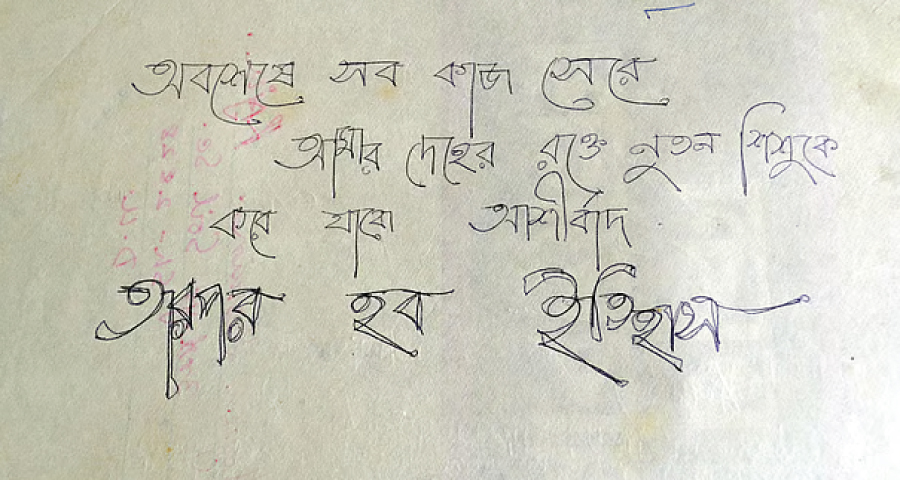 অবশেষে সব কাজ সেরে
আমার দেহের রক্তে নুতন শিশুকে
করে যাবো আশীর্বাদ
তারপর হব ইতিহাস